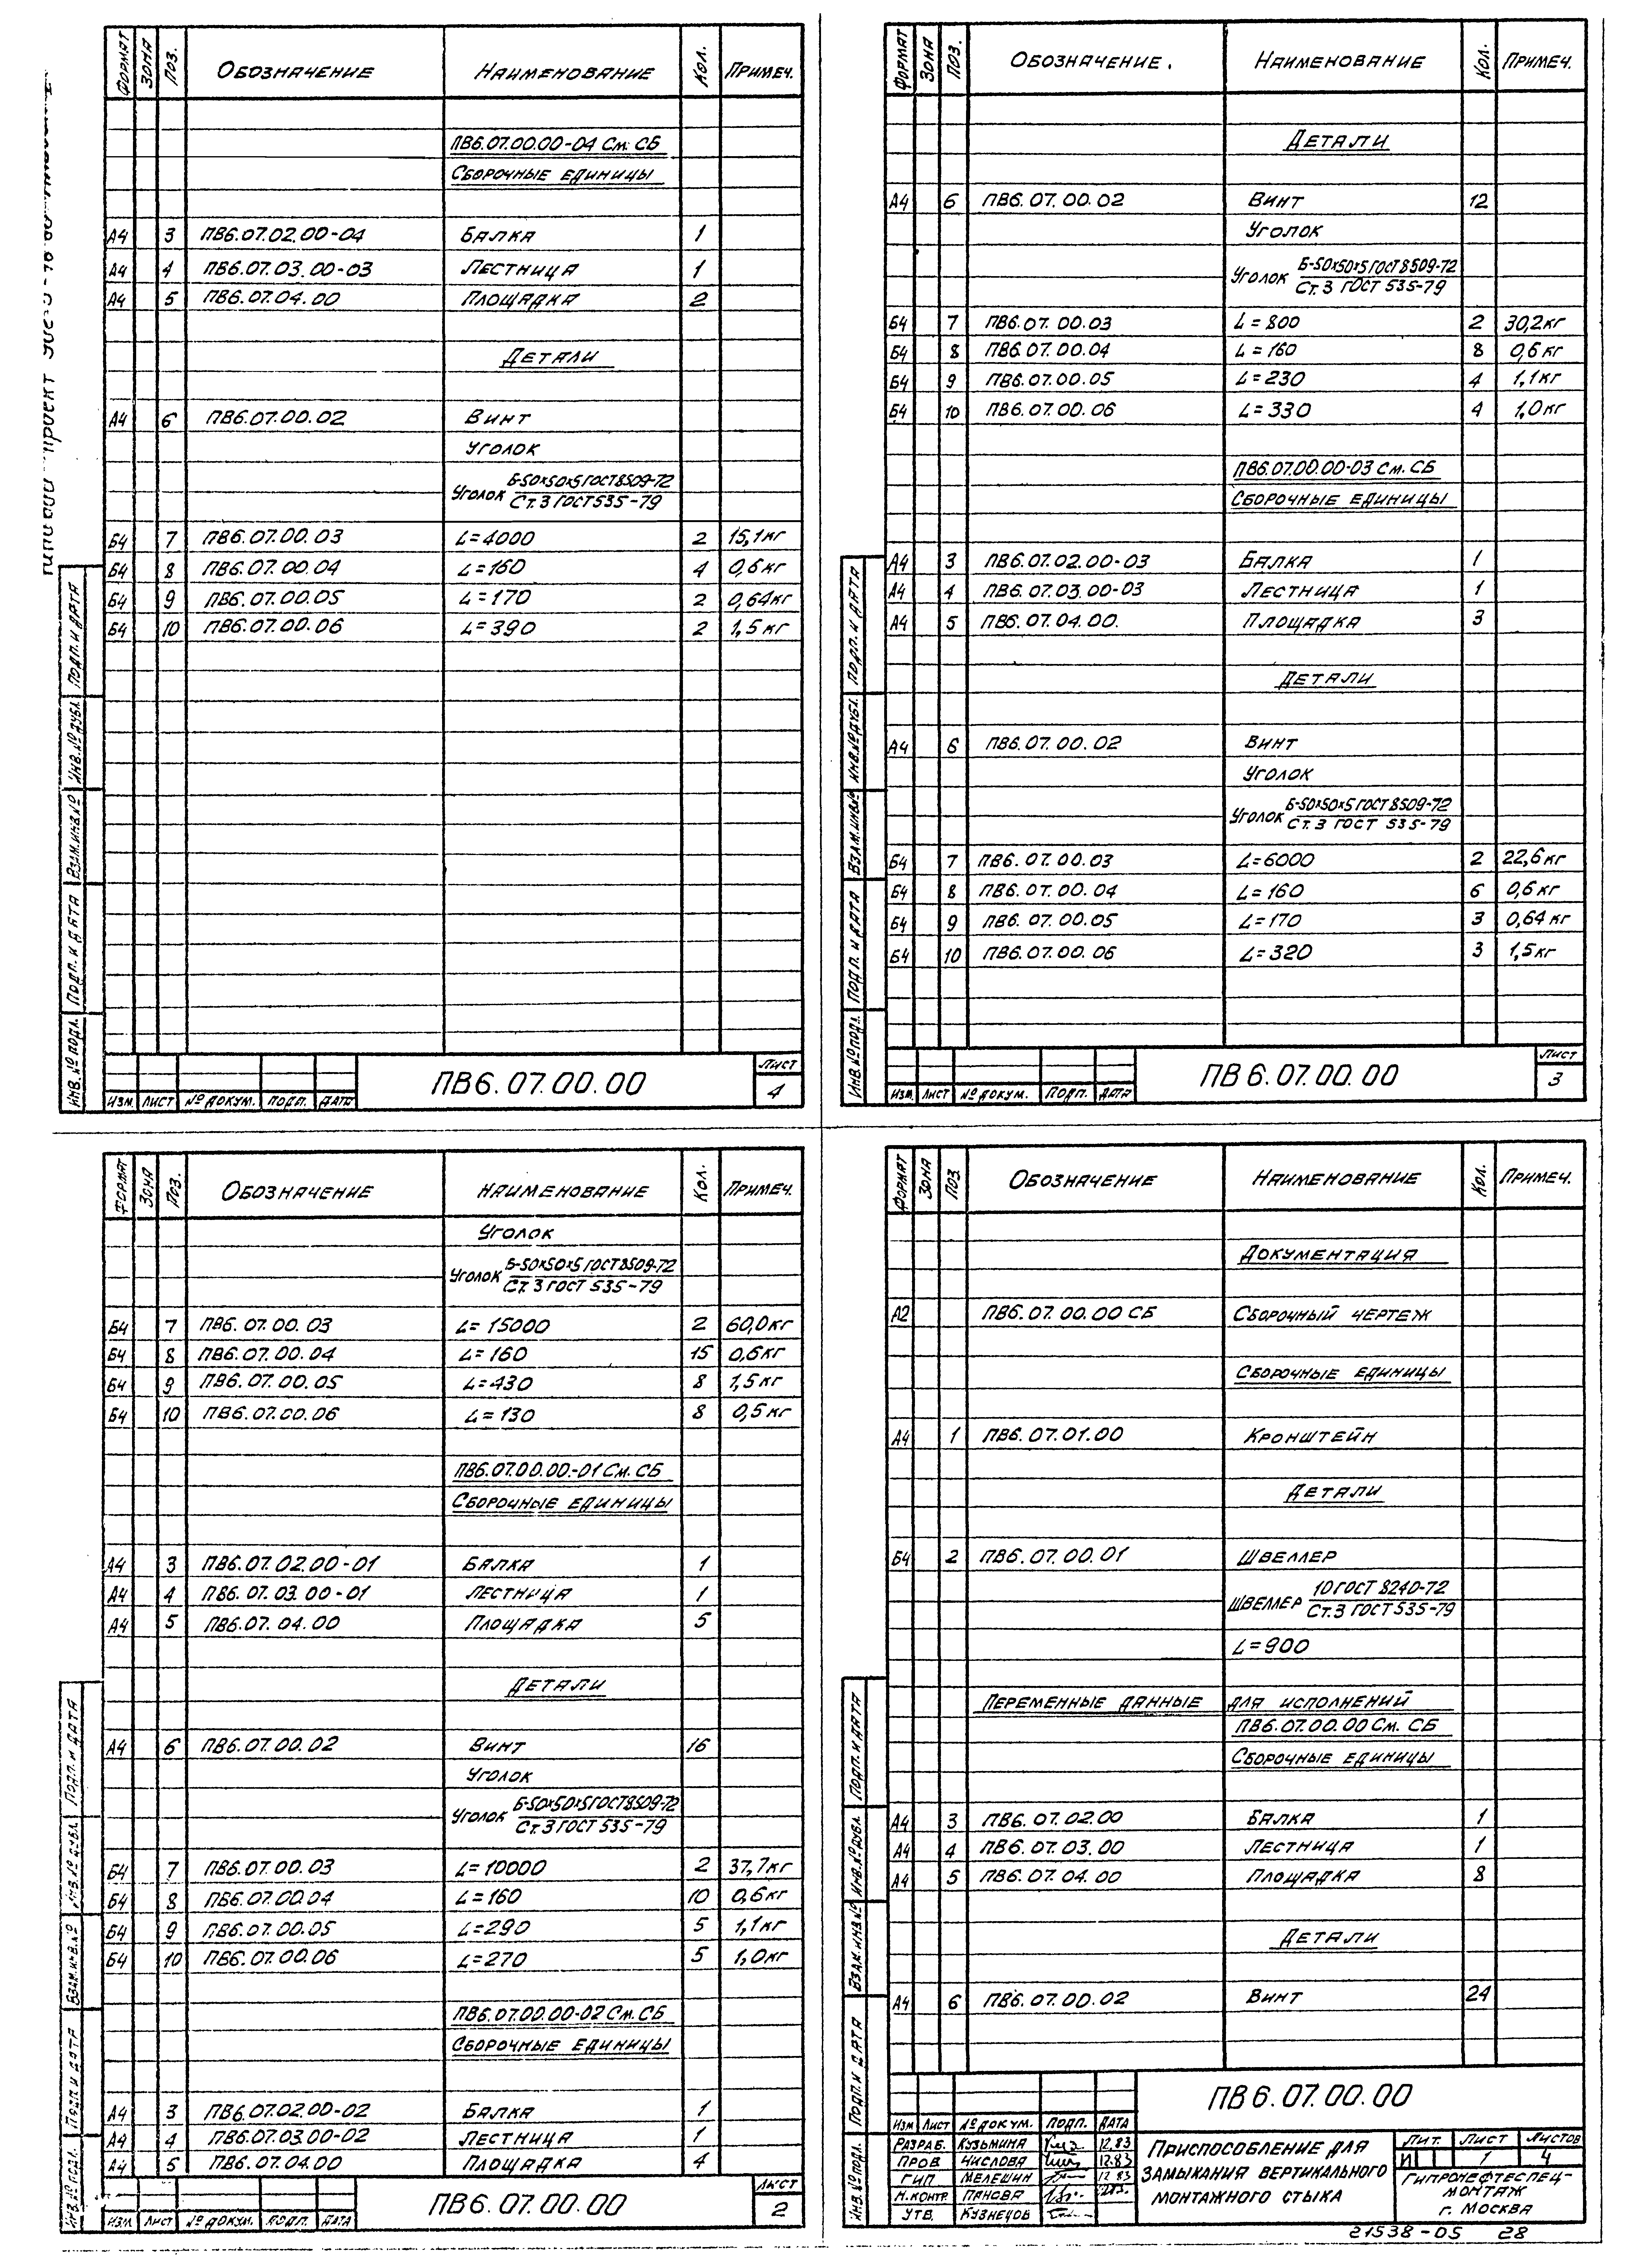 ФОРМАТ ЗОНА ПОЗ. ОБОЗНАЧЕНИЕ НАИМЕНОВАНИЕ КОЛ. ПРИМЕЧ.
ПВ6.07.00.00-04 См. СБ
СБОРОЧНЫЕ ЕДИНИЦЫ
А4 3 ПВ6.07.02.00-04 БАЛКА 1
А4 4 ПВ6.07.03.00-03 ЛЕСТНИЦА 1
А4 5 ПВ6.07.04.00 ПЛОЩАДКА 2
ДЕТАЛИ
А4 6 ПВ6.07.00.02 ВИНТ
УГОЛОК
УГОЛОК Б-50×50×5 ГОСТ 8509-72
Ст.3 ГОСТ 535-79
Б4 7 ПВ6.07.00.03 L=4000 2 15,1кг
Б4 8 ПВ6.07.00.04 L=160 4 0,6кг
Б4 9 ПВ6.07.00.05 L=170 2 0,64кг
Б4 10 ПВ6.07.00.06 L=390 2 1,5кг
ИНВ.№ ПОДЛ. ПОДП. И ДАТА ВЗАМ.ИНВ.№ ИНВ.№ ДУБЛ. ПОДП. И ДАТА
ИЗМ. ЛИСТ № ДОКУМ. ПОДП. ДАТА
ПВ6.07.00.00
ЛИСТ
4
ФОРМАТ ЗОНА ПОЗ. ОБОЗНАЧЕНИЕ. НАИМЕНОВАНИЕ КОЛ. ПРИМЕЧ.
ДЕТАЛИ
А4 6 ПВ6.07.00.02 ВИНТ 12
УГОЛОК
УГОЛОК Б-50×50×5 ГОСТ 8509-72
Ст.3 ГОСТ 535-79
Б4 7 ПВ6.07.00.03 L=800 2 30,2кг
Б4 8 ПВ6.07.00.04 L=160 8 0,6кг
Б4 9 ПВ6.07.00.05 L=230 4 1,1кг
Б4 10 ПВ6.07.00.06 L=330 4 1,0кг
ПВ6.07.00.00-03 См. СБ
СБОРОЧНЫЕ ЕДИНИЦЫ
А4 3 ПВ6.07.02.00-03 БАЛКА 1
А4 4 ПВ6.07.03.00-03 ЛЕСТНИЦА 1
А4 5 ПВ6.07.04.00. ПЛОЩАДКА 3
ДЕТАЛИ
А4 6 ПВ6.07.00.02 ВИНТ
УГОЛОК
УГОЛОК Б-50×50×5 ГОСТ 8509-72
Ст.3 ГОСТ 535-79
Б4 7 ПВ6.07.00.03 L=6000 2 22,6кг
Б4 8 ПВ6.07.00.04 L=160 6 0,6кг
Б4 9 ПВ6.07.00.05 L=170 3 0,64кг
Б4 10 ПВ6.07.00.06 L=320 3 1,5кг
ИНВ.№ ПОДЛ. ПОДП. И ДАТА ВЗАМ.ИНВ.№ ИНВ.№ ДУБЛ. ПОДП. И ДАТА
ИЗМ. ЛИСТ № ДОКУМ. ПОДП. ДАТА
ПВ6.07.00.00
ЛИСТ
3
ФОРМАТ ЗОНА ПОЗ. ОБОЗНАЧЕНИЕ НАИМЕНОВАНИЕ КОЛ. ПРИМЕЧ.
УГОЛОК
УГОЛОК Б-50×50×5 ГОСТ 8509-72
Ст.3 ГОСТ 535-79
Б4 7 ПВ6.07.00.03 L=15000 2 60,0кг
Б4 8 ПВ6.07.00.04 L=160 15 0,6кг
Б4 9 ПВ6.07.00.05 L=430 8 1,5кг
Б4 10 ПВ6.07.00.06 L=130 8 0,5кг
ПВ6.07.00.00-01 См. СБ
СБОРОЧНЫЕ ЕДИНИЦЫ
А4 3 ПВ6.07.02.00-01 БАЛКА 1
А4 4 ПВ6.07.03.00-01 ЛЕСТНИЦА 1
А4 5 ПВ6.07.04.00 ПЛОЩАДКА 5
ДЕТАЛИ
А4 6 ПВ6.07.00.02 ВИНТ 16
УГОЛОК
УГОЛОК Б-50×50×5 ГОСТ 8509-72
Ст.3 ГОСТ 535-79
Б4 7 ПВ6.07.00.03 L=10000 2 37,7кг
Б4 8 ПВ6.07.00.04 L=160 10 0,6кг
Б4 9 ПВ6.07.00.05 L=290 5 1,1кг
Б4 10 ПВ6.07.00.06 L=270 5 1,0кг
ПВ6.07.00.00-02 См. СБ
СБОРОЧНЫЕ ЕДИНИЦЫ
А4 3 ПВ6.07.02.00-02 БАЛКА 1
А4 4 ПВ6.07.03.00-02 ЛЕСТНИЦА 1
А4 5 ПВ6.07.04.00 ПЛОЩАДКА 4
ИНВ.№ ПОДЛ. ПОДП. И ДАТА ВЗАМ.ИНВ.№ ИНВ.№ ДУБЛ. ПОДП. И ДАТА
ИЗМ. ЛИСТ № ДОКУМ. ПОДП. ДАТА
ПВ6.07.00.00
ЛИСТ
2
ФОРМАТ ЗОНА ПОЗ ОБОЗНАЧЕНИЕ НАИМЕНОВАНИЕ КОЛ. ПРИМЕЧ.
ДОКУМЕНТАЦИЯ
А2 ПВ6.07.00.00 СБ СБОРОЧНЫЙ ЧЕРТЕЖ
СБОРОЧНЫЕ ЕДИНИЦЫ
А4 1 ПВ6.07.01.00 КРОНШТЕЙН
ДЕТАЛИ
Б4 2 ПВ6.07.00.01 ШВЕЛЛЕР
ШВЕЛЛЕР 10 ГОСТ 8240-72
Ст.3 ГОСТ 535-79
L=900
ПЕРЕМЕННЫЕ ДАННЫЕ ДЛЯ ИСПОЛНЕНИЙ
ПВ6.07.00.00 См. СБ
СБОРОЧНЫЕ ЕДИНИЦЫ
А4 3 ПВ6.07.02.00 БАЛКА 1
А4 4 ПВ6.07.03.00 ЛЕСТНИЦА 1
А4 5 ПВ6.07.04.00 ПЛОЩАДКА 8
ДЕТАЛИ
А4 6 ПВ6.07.00.02 ВИНТ 24
ИНВ.№ ПОДЛ. ПОДП. И ДАТА ВЗАМ.ИНВ.№ ИНВ.№ ДУБЛ. ПОДП. И ДАТА
ПВ6.07.00.00
ИЗМ ЛИСТ № ДОКУМ. ПОДП. ДАТА
РАЗРАБ. КУЗЬМИНА 12.83
ПРОВ ЧИСЛОВА 12.83
ГИП МЕЛЕШИН 12 83
Н.КОНТР ПАНОВА
УТВ. КУЗНЕЦОВ
ПРИСПОСОБЛЕНИЕ ДЛЯ
ЗАМЫКАНИЯ ВЕРТИКАЛЬНОГО
МОНТАЖНОГО СТЫКА
ЛИТ. ЛИСТ ЛИСТОВ
И 1 4
ГИПРОНЕФТЕСПЕЦ-
МОНТАЖ
г. МОСКВА
21538-05 28